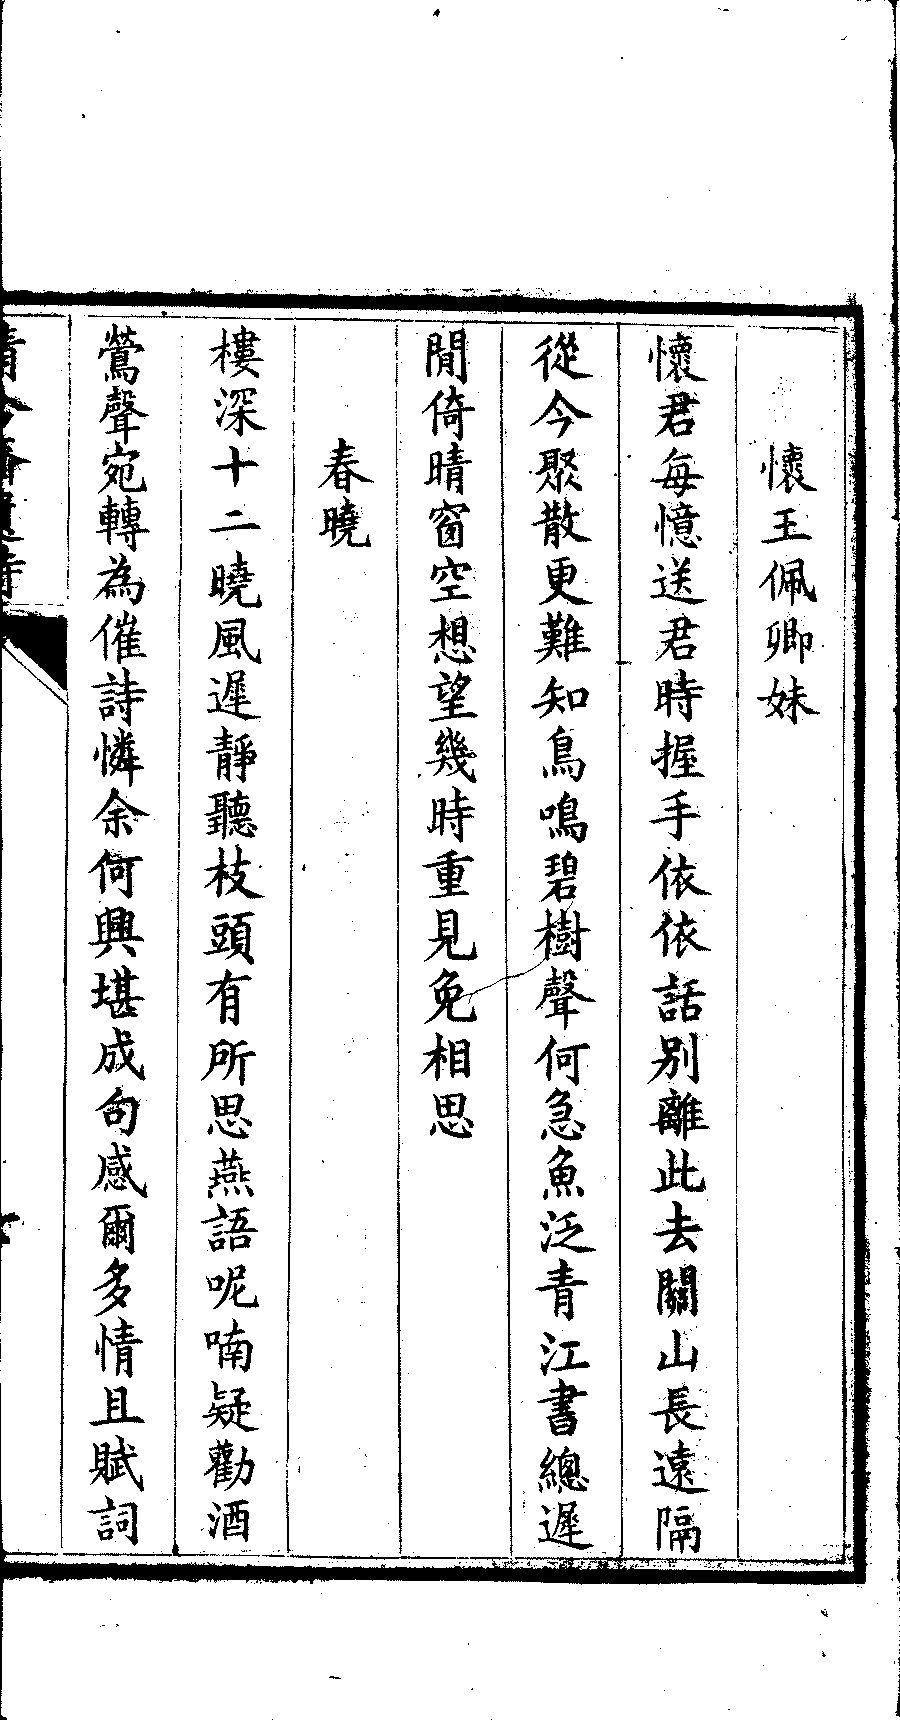 懷王佩卿妹
懷君每憶送君時握手依依話別離此去關山長遠隔
從今聚散更難知鳥鳴碧樹聲何急魚泛青江書總遲
閒倚晴窗空想望幾時重見免相思
春曉
樓深十二曉風遲靜聽枝頭有所思燕語呢喃疑勸酒
鶯聲宛轉為催詩憐余何興堪成句感爾多情且賦詞